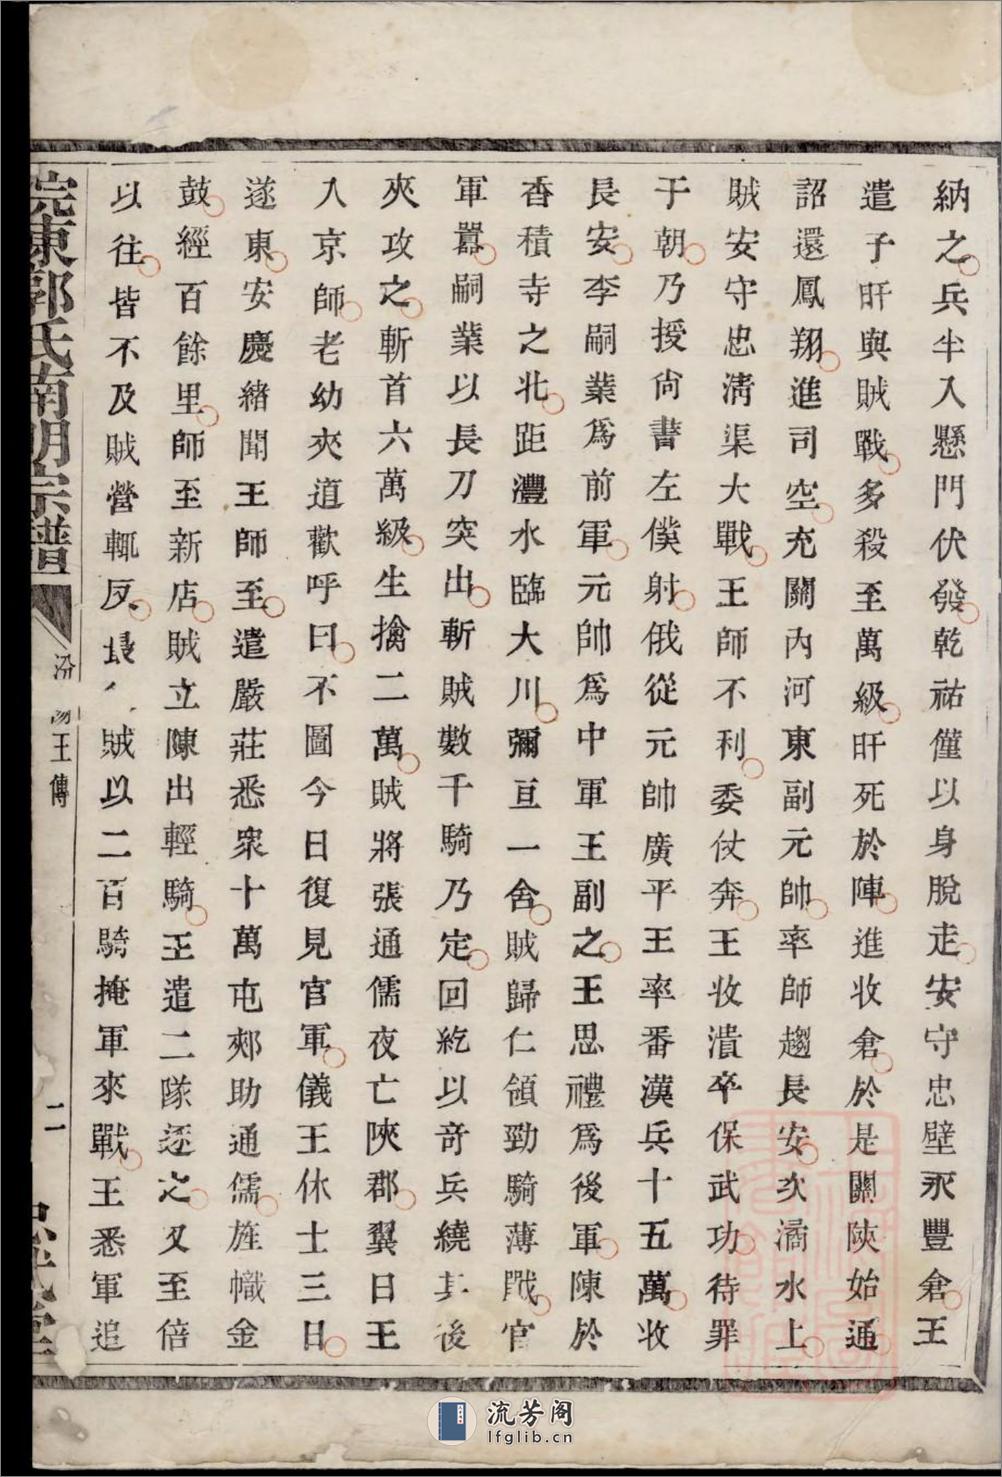 納之兵半入懸門伏發乾祐僅以身脫走安守忠壁永豐倉王
遣子旰與賊戰多殺至萬級旰死於陣進收倉於是關陝始通
詔還鳳翔進司空充關內河東副元帥率師趨長安次潏水上
賊安守忠淸渠大戰王師不利委仗奔王收潰卒保武功待罪
于朝乃授尙書左僕射俄從元帥廣平王率番漢兵十五萬收
長安李嗣業爲前軍元帥爲中軍王副之王思禮爲後軍陳於
香積寺之北距灃水臨大川彌亘一舍賊歸仁領勁騎薄戰官
軍囂嗣業以長刀突出斬賊數千騎乃定回紇以奇兵繞其後
夾攻之斬首六萬級生擒二萬賊將張通儒夜亡陝郡翼日王
入京師老幼夾道歡呼曰不圖今日復見官軍儀王休士三日
遂東安慶緒聞王師至遣嚴莊悉衆十萬屯郟助通儒旌幟金
鼓經百餘里師至新店賊立陳出輕騎王遣二隊逐之又至倍
以往皆不及賊營輒反長賊以二百騎掩軍來戰王悉軍追
皖東郭氏南明宗譜
汾
王傳
二